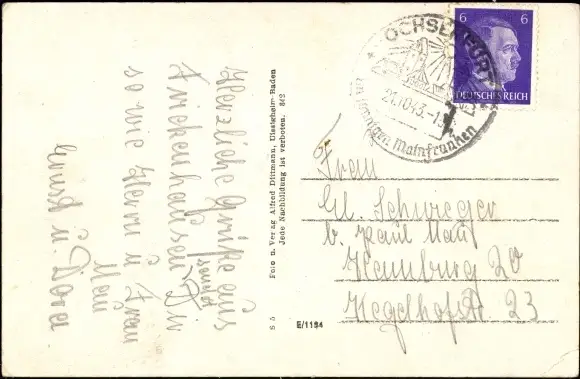 Herzliche Grüße aus
Frickenhausen
sendet Dir
sowie Herrn u. Frau
Mau
Ernst u. Dora
Foto u. Verlag Alfred Dittmann, Uissigheim-Baden
Jede Nachbildung ist verboten. 842
S 5
E/1194
OCHSENFURT
21.10.43.-
Mainfranken
6 6
DEUTSCHES REICH
Frau
Schweger
b. Paul Mau
Hamburg 20
Kegelhofstr. 23